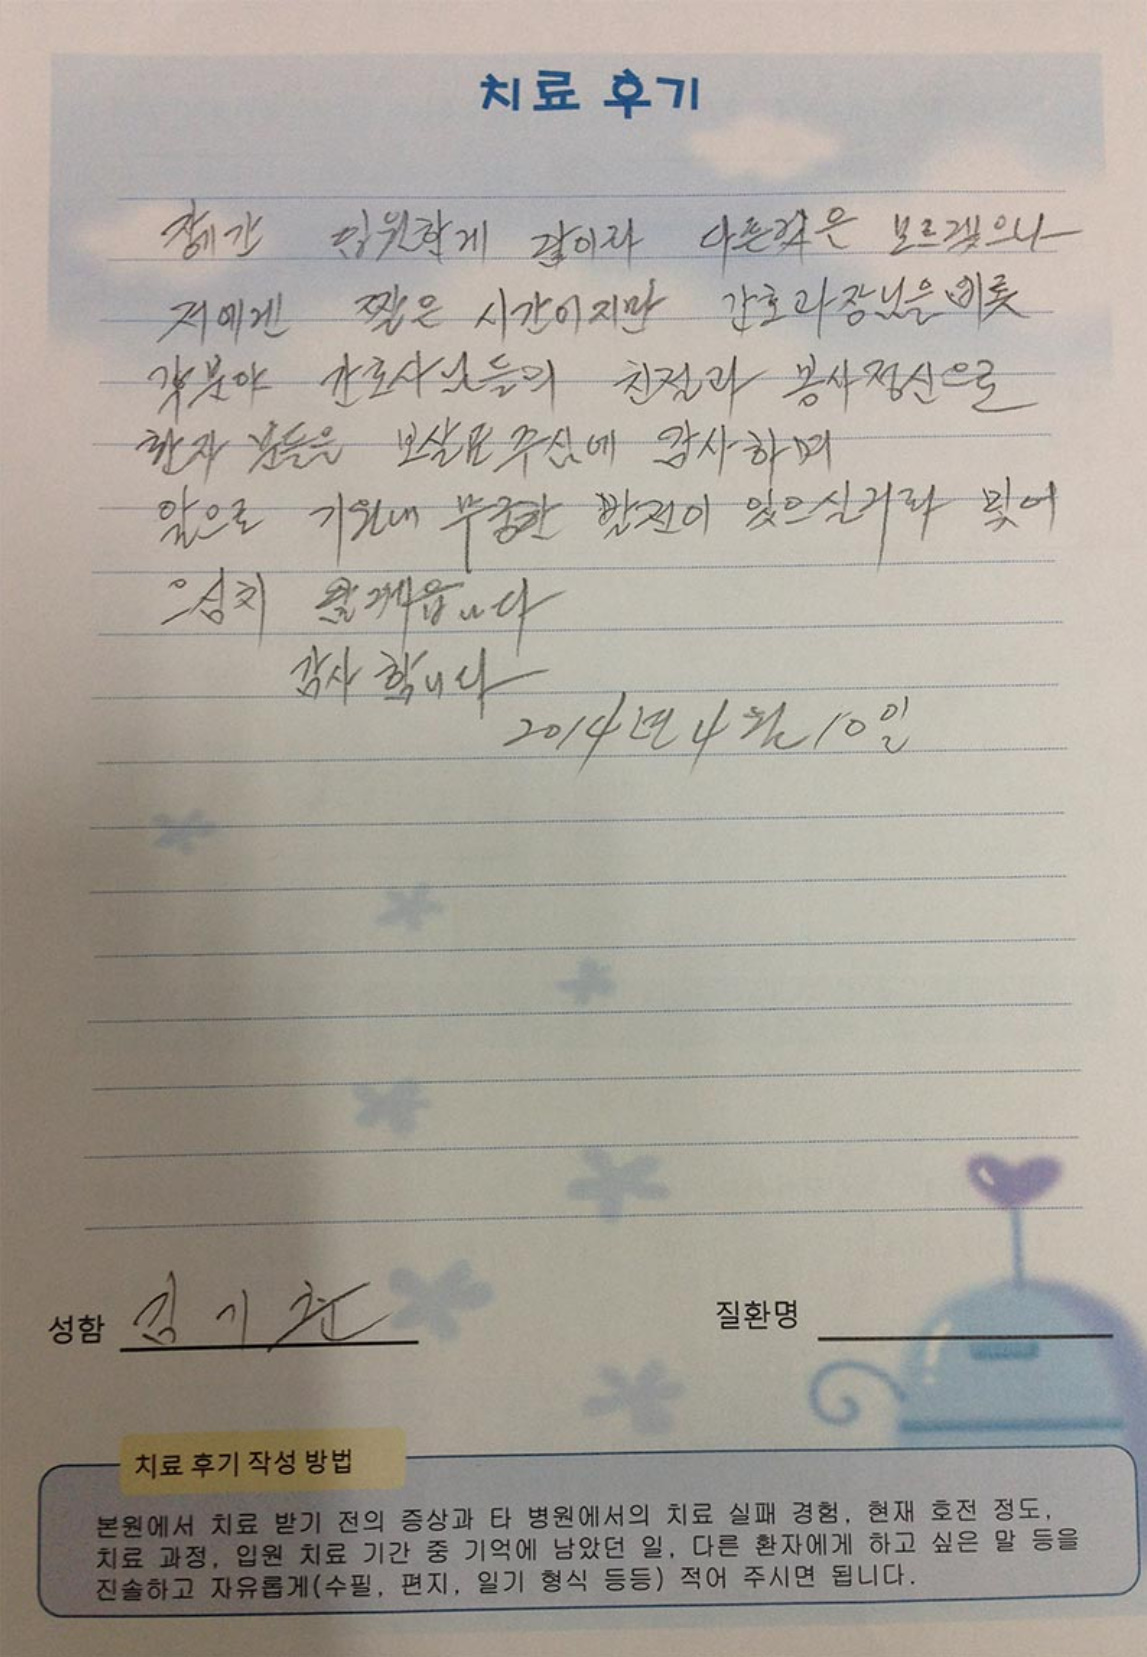 치료 후기
입원한게 다른것은 모르겠으나
저에겐 짧은 시간이지만 간호과장님을 비롯
각분야 간호사님들의 친절과 봉사정신으로
환자 분들을 보살펴 주심에 감사하며
앞으로 기원내 무궁한 발전이 있으실거라 믿어
의심치
감사 합니다
2014년 4월 10일
성함 김기환
질환명
치료 후기 작성 방법
본원에서 치료 받기 전의 증상과 타 병원에서의 치료 실패 경험, 현재 호전 정도,
치료 과정, 입원 치료 기간 중 기억에 남았던 일, 다른 환자에게 하고 싶은 말 등을
진솔하고 자유롭게(수필, 편지, 일기 형식 등등) 적어 주시면 됩니다.